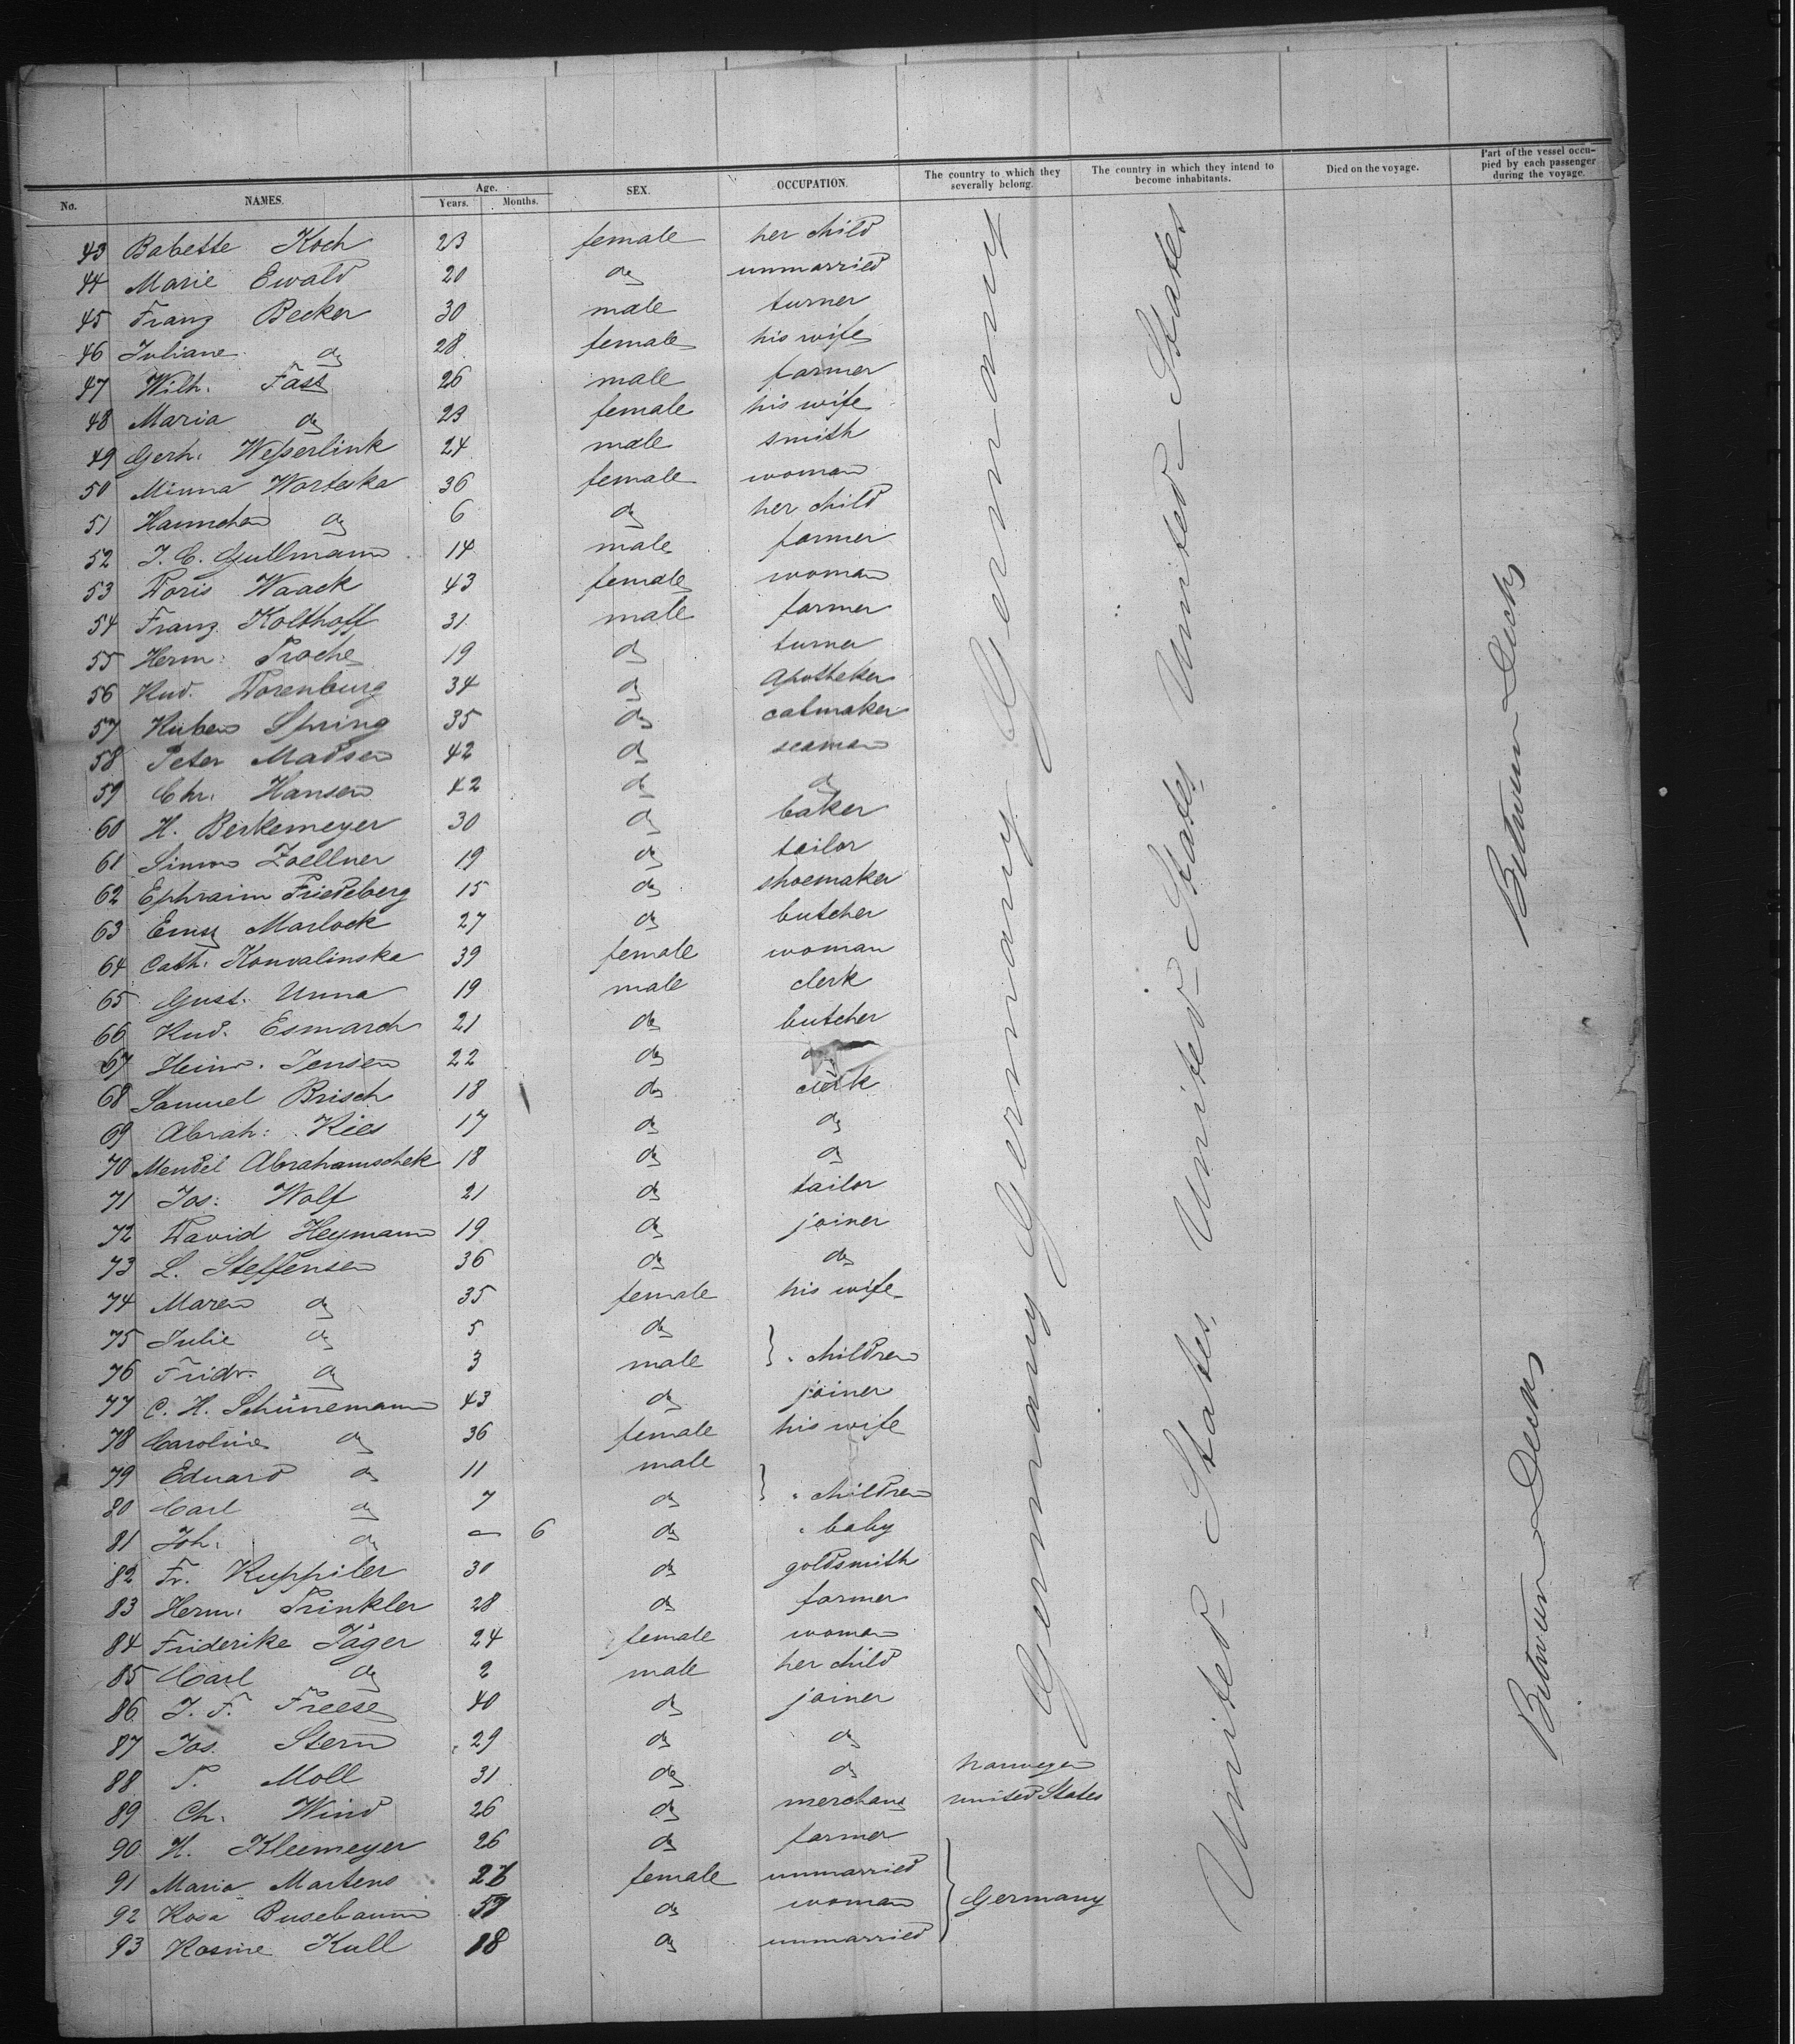 No. NAMES. Age. Years. Months. SEX. OCCUPATION. The country to which they severally belong. The country in which they intend to become inhabitants. Died on the voyage. Part of the vessel occupied by each passenger during the voyage.
43 Babette Koch 23 female her child
44 Marie Ewald 20 do unmarried
45 Franz Becker 30 male turner
46 Juliane do 28 female his wife
47 Wilh. Fass 26 male farmer
48 Maria do 23 female his wife
49 Gerh. Wesserlink 24 male smith
50 Minna Worteska 36 female woman
51 Hannchen do 6 do her child
52 J. C. Gullmann 14 male farmer
53 Doris Waack 43 female woman
54 Franz Kolthoff 31 male farmer
55 Herm. Troche 19 do turner
56 Rud. Dorenburg 34 do Apotheker
57 Ruben Spring 35 do catmaker
58 Peter Madsen 42 do seaman
59 Chr. Hansen 42 do do
60 H. Berkemeyer 30 do baker
61 Simon Zoellner 19 do tailor
62 Ephraim Friedeberg 15 do shoemaker
63 Ernst Marlock 27 do butcher
64 Cath. Konvalinska 39 female woman
65 Gust. Unna 19 male clerk
66 Rud. Esmarch 21 do butcher
67 Heinr. Jensen 22 do
68 Samuel Brisch 18 do clerk
69 Abrah: Kies 17 do do
70 Mendel Abrahamschek 18 do do
71 Jos: Wolf 21 do tailor
72 David Heymann 19 do joiner
73 L. Steffensen 36 do do
74 Maren do 35 female his wife
75 Julie do 5 do
76 Fridr. do 3 male } " children
77 C. H. Schünemann 43 do joiner
78 Caroline do 36 female his wife
79 Eduard do 11 male
80 Carl do 7 do } " children
81 Joh. do — 6 do " baby
82 Fr. Ruppiler 30 do goldsmith
83 Herm. Trinkler 28 do farmer
84 Friderike Jäger 24 female woman
85 Carl do 2 male her child
86 J. F. Freese 40 do joiner
87 Jos. Stern 29 do do
88 P. Moll 31 do do Norwegen
89 Ch. Wind 26 do merchant United States
90 H. Kleemeyer 26 do farmer
91 Maria Martens female unmarried
92 Rosa Busebaum do woman } Germany
93 Rosine Kull 18 do unmarried
Germany Germany Germany
United States United States United States
Between Decks Between Decks